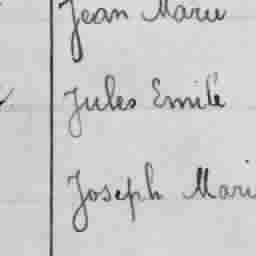 Jean Marie
Jules Emile
Joseph Mari